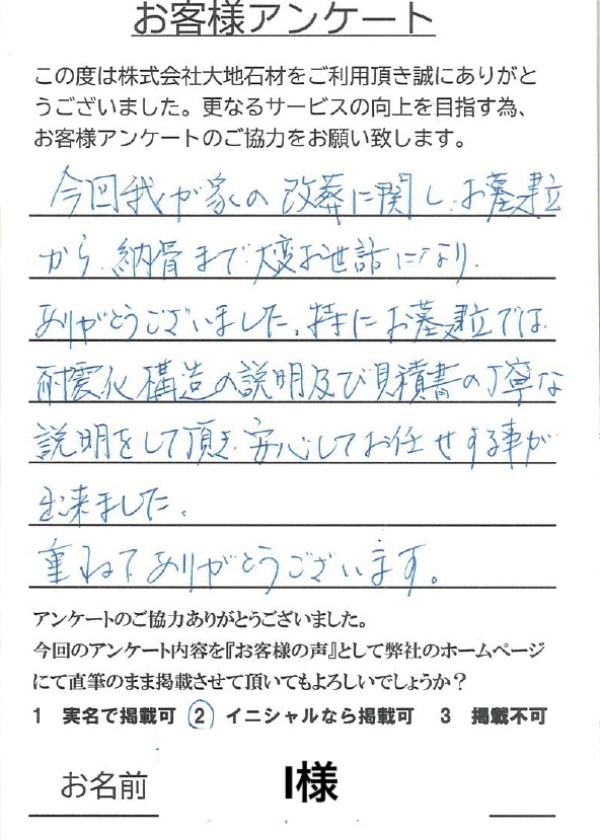 お客様アンケート
この度は株式会社大地石材をご利用頂き誠にありがと
うございました。更なるサービスの向上を目指す為、
お客様アンケートのご協力をお願い致します。
今回我が家の改葬に関し、お墓建立
から、納骨まで大変お世話になり、
ありがとうございました。特にお墓建立では
耐震化構造の説明及び見積書の丁寧な
説明をして頂き、安心してお任せする事が
出来ました。
重ねてありがとうございます。
アンケートのご協力ありがとうございました。
今回のアンケート内容を『お客様の声』として弊社のホームページ
にて直筆のまま掲載させて頂いてもよろしいでしょうか？
1 実名で掲載可 2 イニシャルなら掲載可 3 掲載不可
お名前 I様